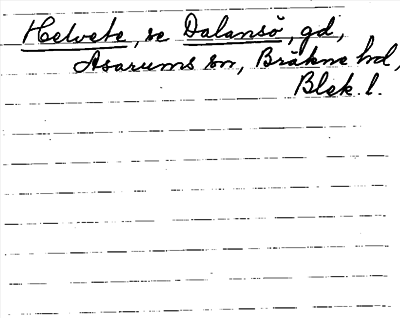 Helvete, se Dalansö, gd,
Asarums sn, Bräkne hd,
Blek. l.